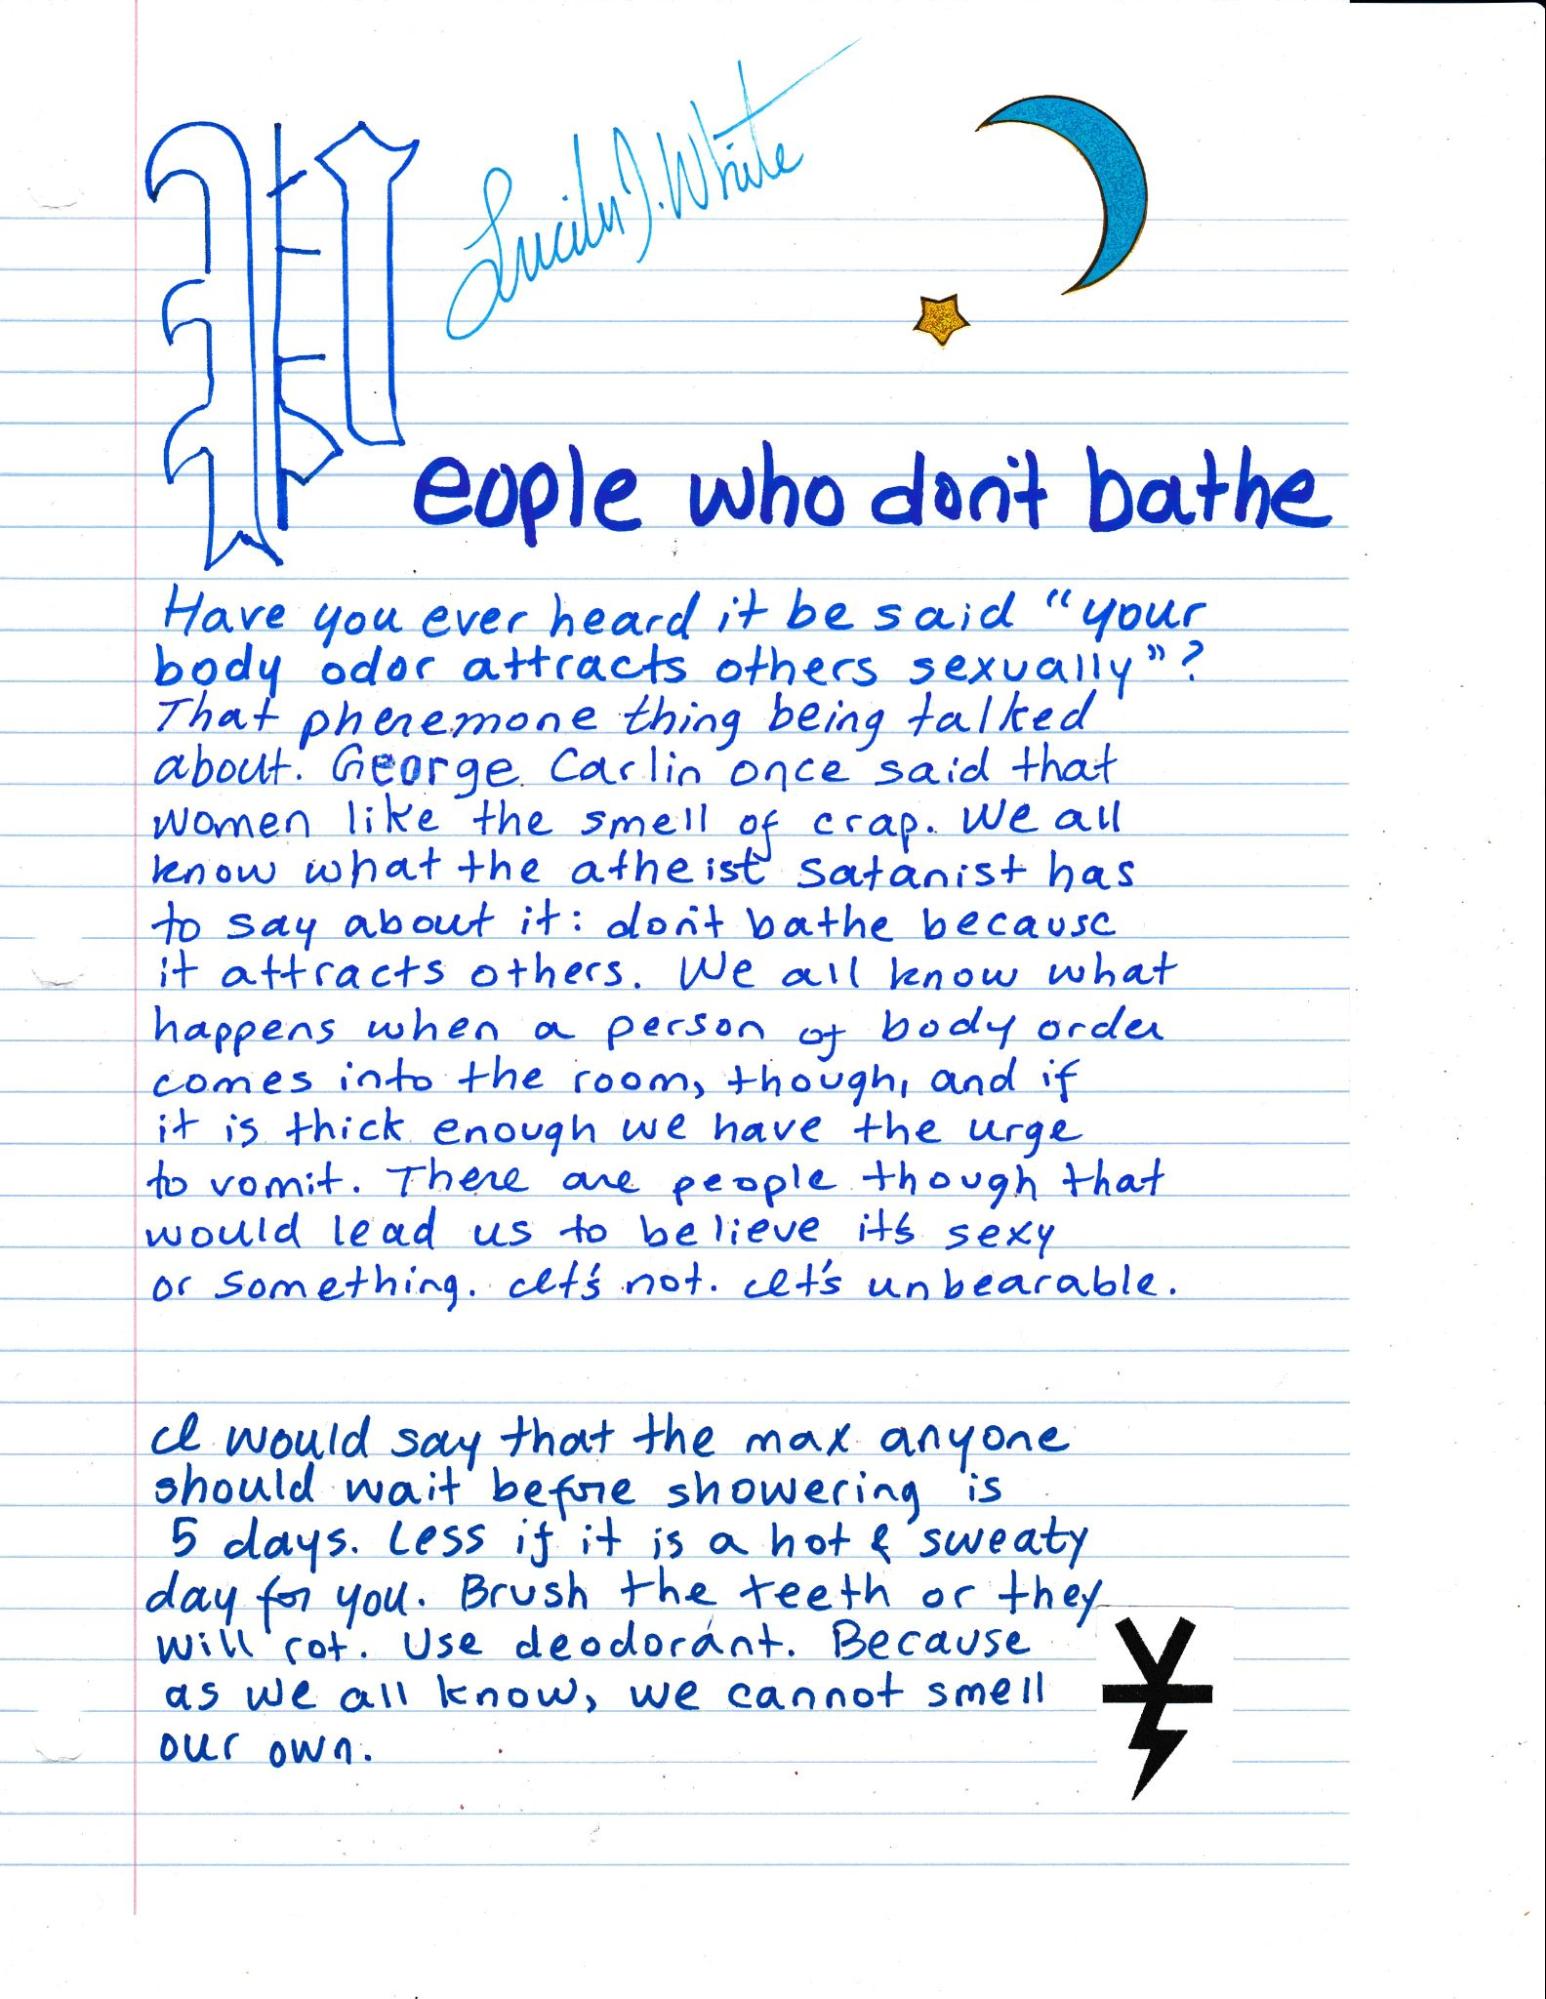 Lucifer J. White
People who don't bathe
Have you ever heard it be said "your
body odor attracts others sexually"?
That pheremone thing being talked
about. George Carlin once said that
women like the smell of crap. We all
know what the atheist Satanist has
to say about it: don't bathe because
it attracts others. We all know what
happens when a person of body order
comes into the room, though, and if
it is thick enough we have the urge
to vomit. There are people though that
would lead us to believe it's sexy
or something. It's not. It's unbearable.
I would say that the max anyone
should wait before showering is
5 days. Less if it is a hot & sweaty
day for you. Brush the teeth or they
will rot. Use deodorant. Because
as we all know, we cannot smell
our own.